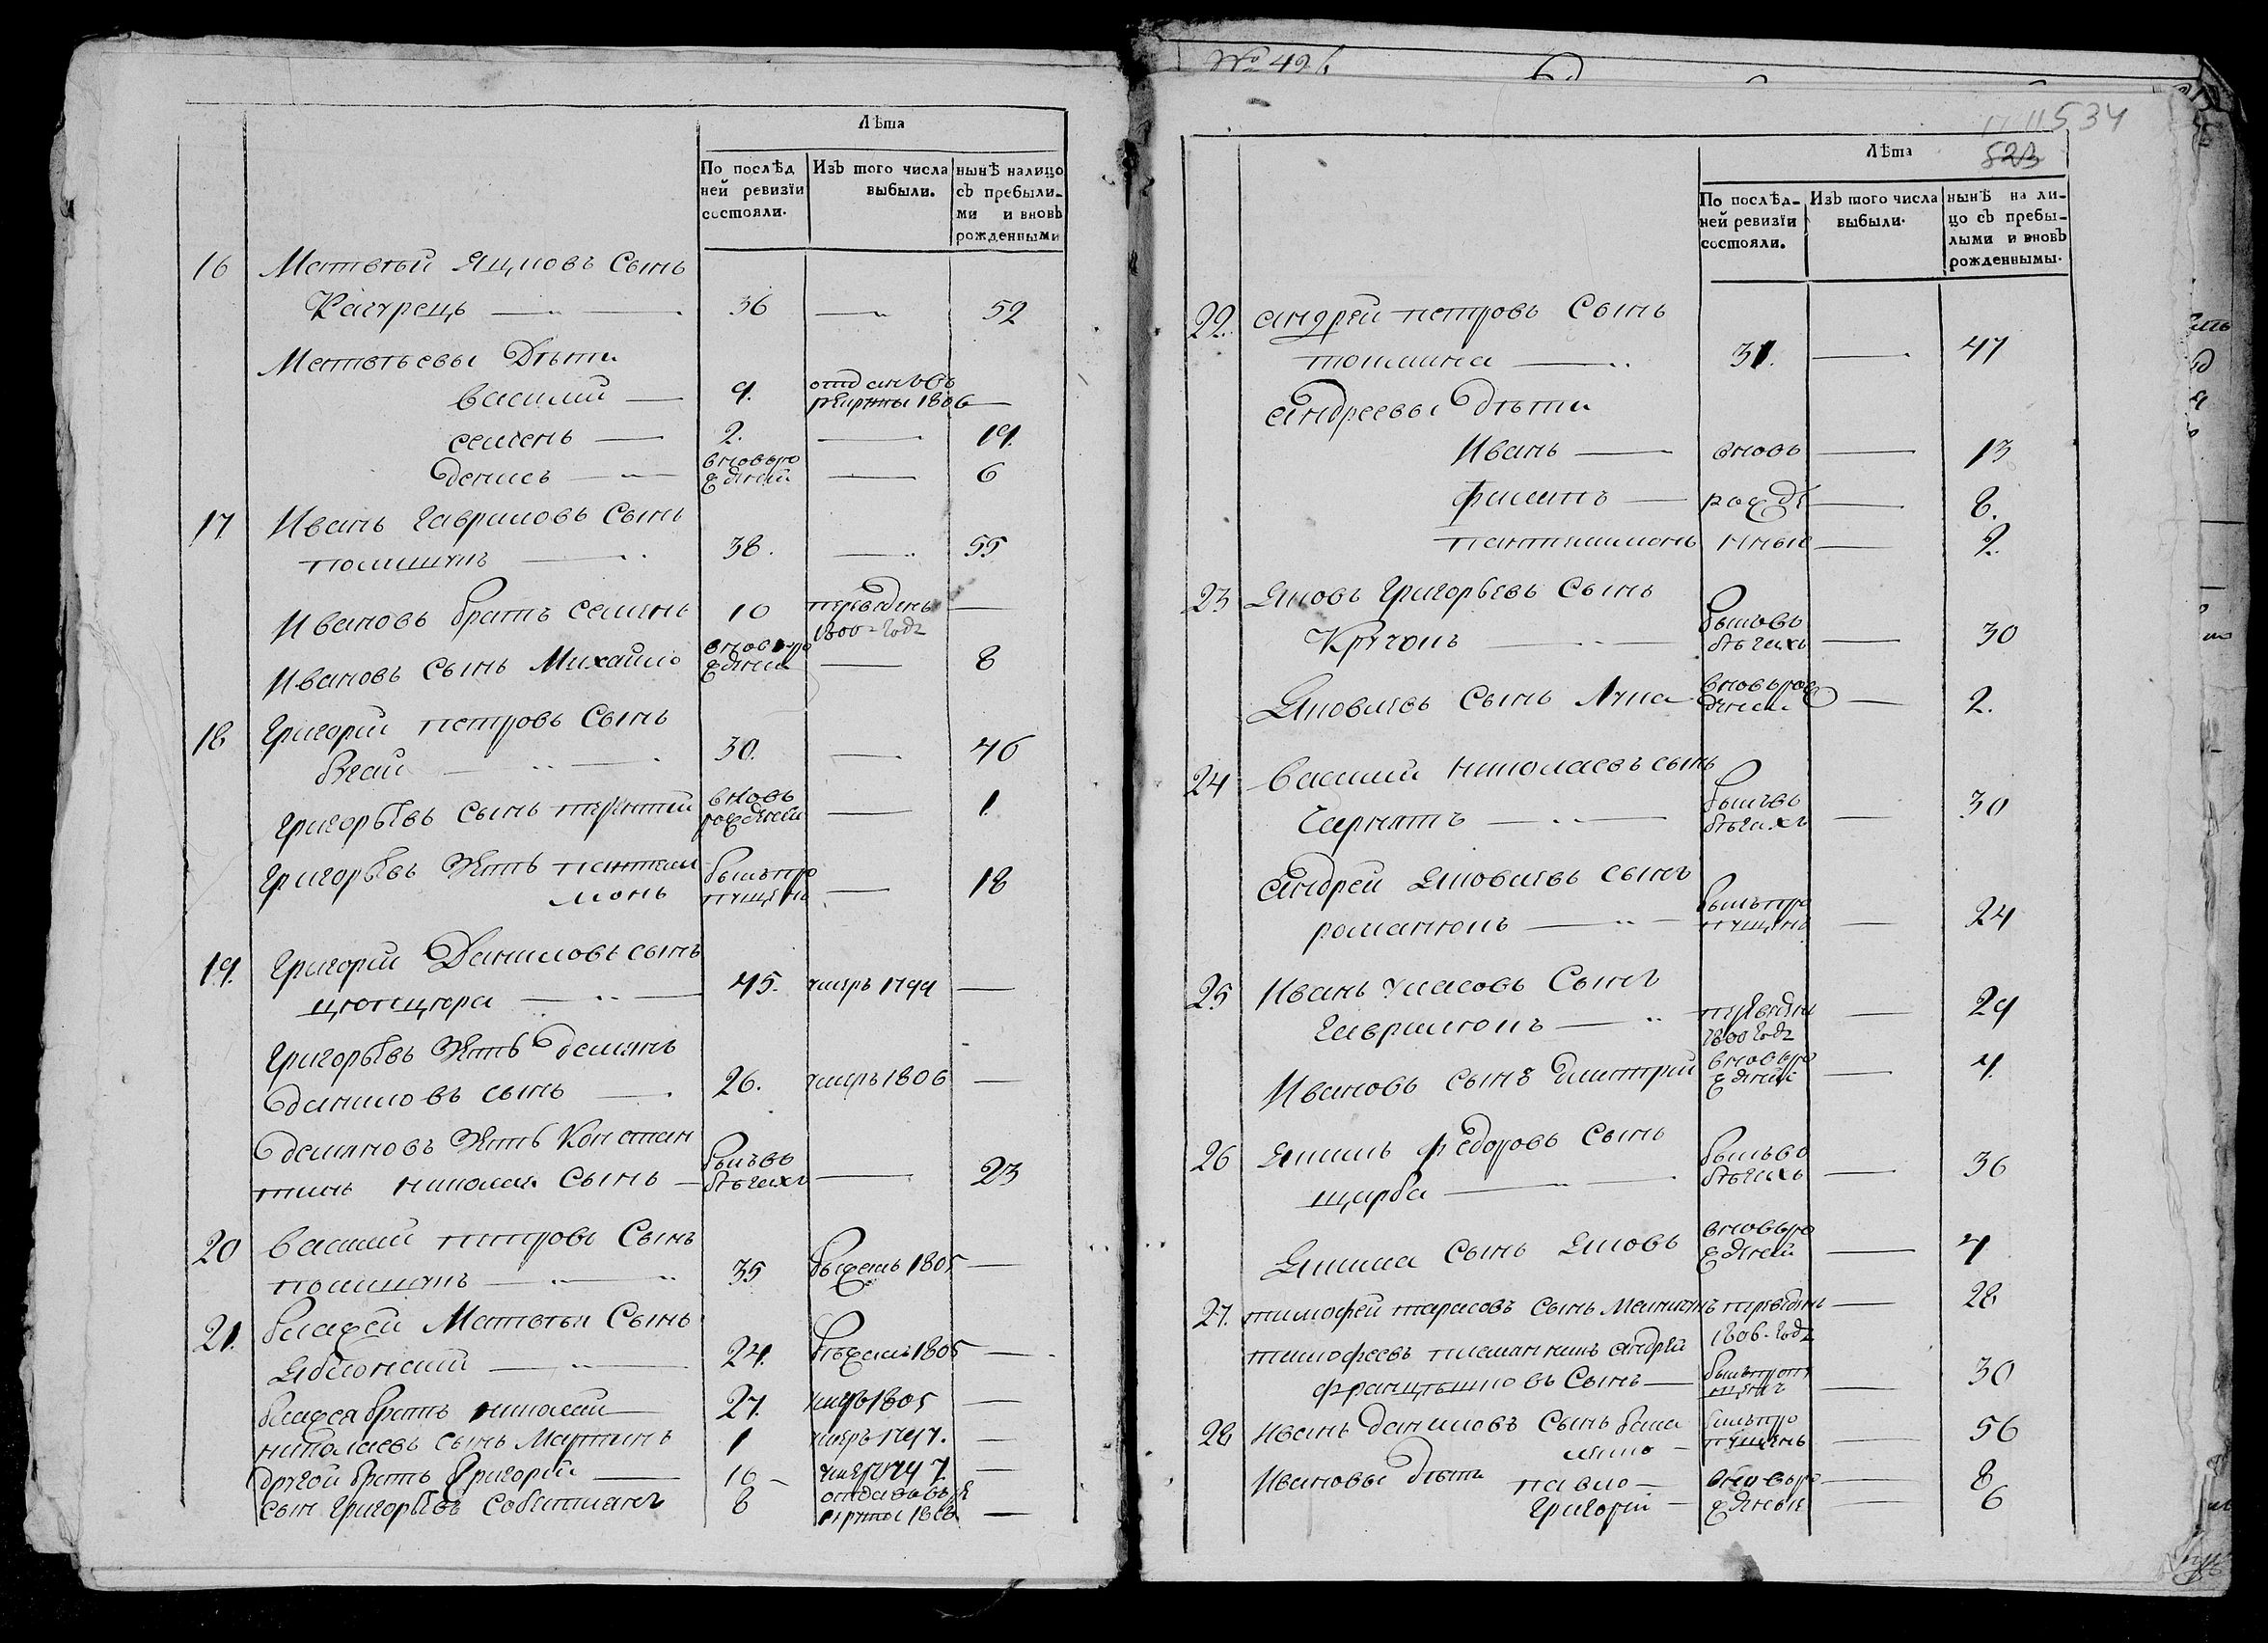 Лѣта
По послѣд
ней ревизїи
состояли.
Изъ того числа
выбыли.
нынѣ налицо
съ пребыли-
ми и вновь
рожденными
16 Матвѣй Яцковъ Сынъ
36 — 52
Матвѣевы Дѣти
василий — 9. отданъ въ
рекруты 1806 —
семенъ — 2. — 19.
денисъ — вновь ро
жденъ — 6
17 Иванъ Гавриловъ Сынъ
полищукъ — 38. — 55
Ивановъ братъ семенъ 10 переведенъ —
1800 года
Ивановъ сынъ Михайло вновь ро
жденъ — 8
18 Григорій петровъ Сынъ
бугай — 30. — 46
Григорьевъ сынъ терентий вновь
рожденъ — 1
Григорьевъ Зять пантели
монъ былъ про
пущенъ — 18
19. Григорій Даниловъ сынъ
45. умеръ 1799 —
Григорьевъ Зять демянъ
даниловъ сынъ — 26. умеръ 1806 —
демяновъ Зять Констан
тинъ николаи Сынъ — былъ въ
бѣгахъ — 23
20 василий петровъ Сынъ
полищукъ — 35 бѣжалъ 1805 —
21. блажей Матвѣя Сынъ
Яблонский — 24. бѣжалъ 1805 —
блажея братъ николай — 27. умеръ 1805 —
николаевъ сынъ Мартинъ 1 умеръ 1797. —
другой братъ Григорий — 16 — умеръ 1797 —
сын Григорьевъ Собестиянъ 8 отданъ въ ре
круты 1808 —
№ 49
11534
523
Лѣта
По послѣд-
ней ревизїи
состояли.
Изъ того числа
выбыли.
нынѣ на ли-
цо съ пребы-
лыми и вновь
рожденнымы.
22. андрей петровъ Сынъ
31. — 47
андреевы дѣти
Иванъ — вновь — 13
филипъ — рожде — 8.
пантилимонъ нные — 2.
23 Яковъ Григорьевъ Сынъ
Кручокъ — былъ въ
бѣгахъ — 30
Яковлевъ Сынъ Лука вновь рож
денъ — 2.
24 василий николаевъ сынъ
былъ въ
бѣгахъ — 30
андрей Яковлевъ сынъ
романюкъ — былъ про
пущенъ — 24
25 Иванъ уласовъ Сынъ
Гаврилюкъ — переведенъ
1800 года — 29
Ивановъ сынъ дмитрий вновь ро
жденъ — 4.
26 Якимъ федоровъ Сынъ
щерба — былъ въ
бѣгахъ — 36
Якима Сынъ Яковъ вновь ро
жденъ — 4
27. тимофей тарасовъ сынъ переведенъ — 28
1806. года
тимофеевъ племянникъ андрей
Сынъ — былъ проп
ущенъ — 30
28 Иванъ даниловъ Сынъ былъ про
пущенъ — 56
Ивановы дѣти павло — вновь ро — 8
Григорій — жденые — 6